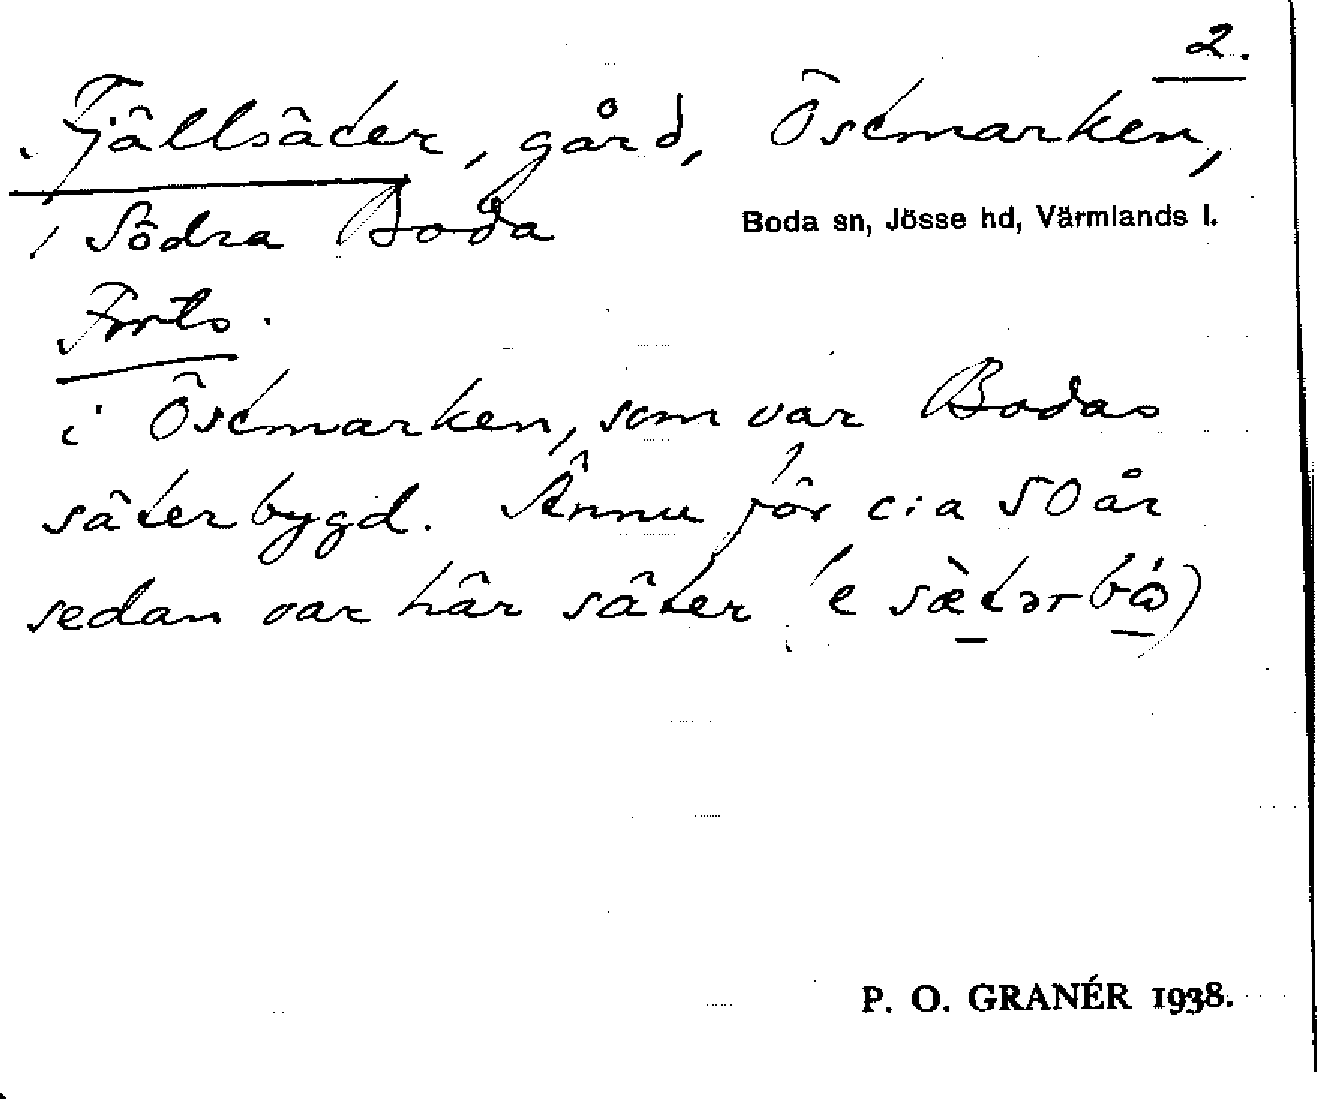 2.
Fjällsäter, gård, Östmarken,
Södra Boda
Boda sn, Jösse hd, Värmlands l.
Forts.
i Östmarken, som var Bodas
säterbygd. Ännu för c:a 50 år
sedan var här säter (e sæ̀tərbó)
P. O. GRANÉR 1938.